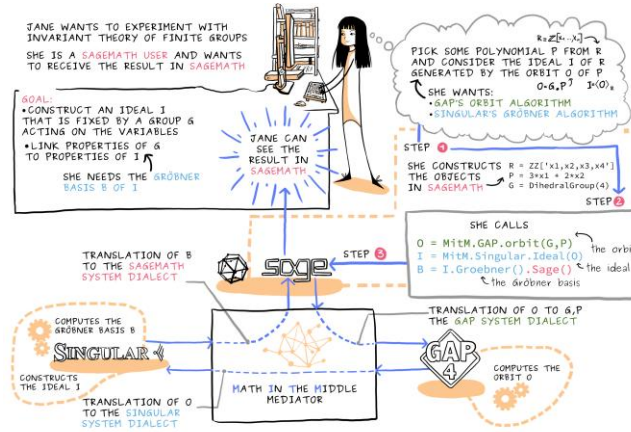 JANE WANTS TO EXPERIMENT WITH
INVARIANT THEORY OF FINITE GROUPS
SHE IS A SAGEMATH USER AND WANTS
TO RECEIVE THE RESULT IN SAGEMATH
GOAL:
• CONSTRUCT AN IDEAL I
THAT IS FIXED BY A GROUP G
ACTING ON THE VARIABLES
• LINK PROPERTIES OF G
TO PROPERTIES OF I
SHE NEEDS THE GRÖBNER
BASIS B OF I
JANE CAN
SEE THE
RESULT IN
SAGEMATH
PICK SOME POLYNOMIAL P FROM R
AND CONSIDER THE IDEAL I OF R
GENERATED BY THE ORBIT O OF P
SHE WANTS:
• GAP'S ORBIT ALGORITHM
• SINGULAR'S GRÖBNER ALGORITHM
STEP 1
SHE CONSTRUCTS
THE OBJECTS
IN SAGEMATH
R = ZZ['x1,x2,x3,x4']
P = 3*x1 + 2*x2
G = DihedralGroup(4)
STEP 2
SHE CALLS
O = MitM.GAP.orbit(G,P)
the orbi
I = MitM.Singular.Ideal(O)
the ideal
B = I.Groebner().Sage()
the Gröbner basis
STEP 3
sage
TRANSLATION OF B
TO THE SAGEMATH
SYSTEM DIALECT
TRANSLATION OF O TO G,P
THE GAP SYSTEM DIALECT
COMPUTES THE
GRÖBNER BASIS B
SINGULAR
CONSTRUCTS
THE IDEAL I
MATH IN THE MIDDLE
MEDIATOR
GAP
4
COMPUTES THE
ORBIT O
TRANSLATION OF O
TO THE SINGULAR
SYSTEM DIALECT